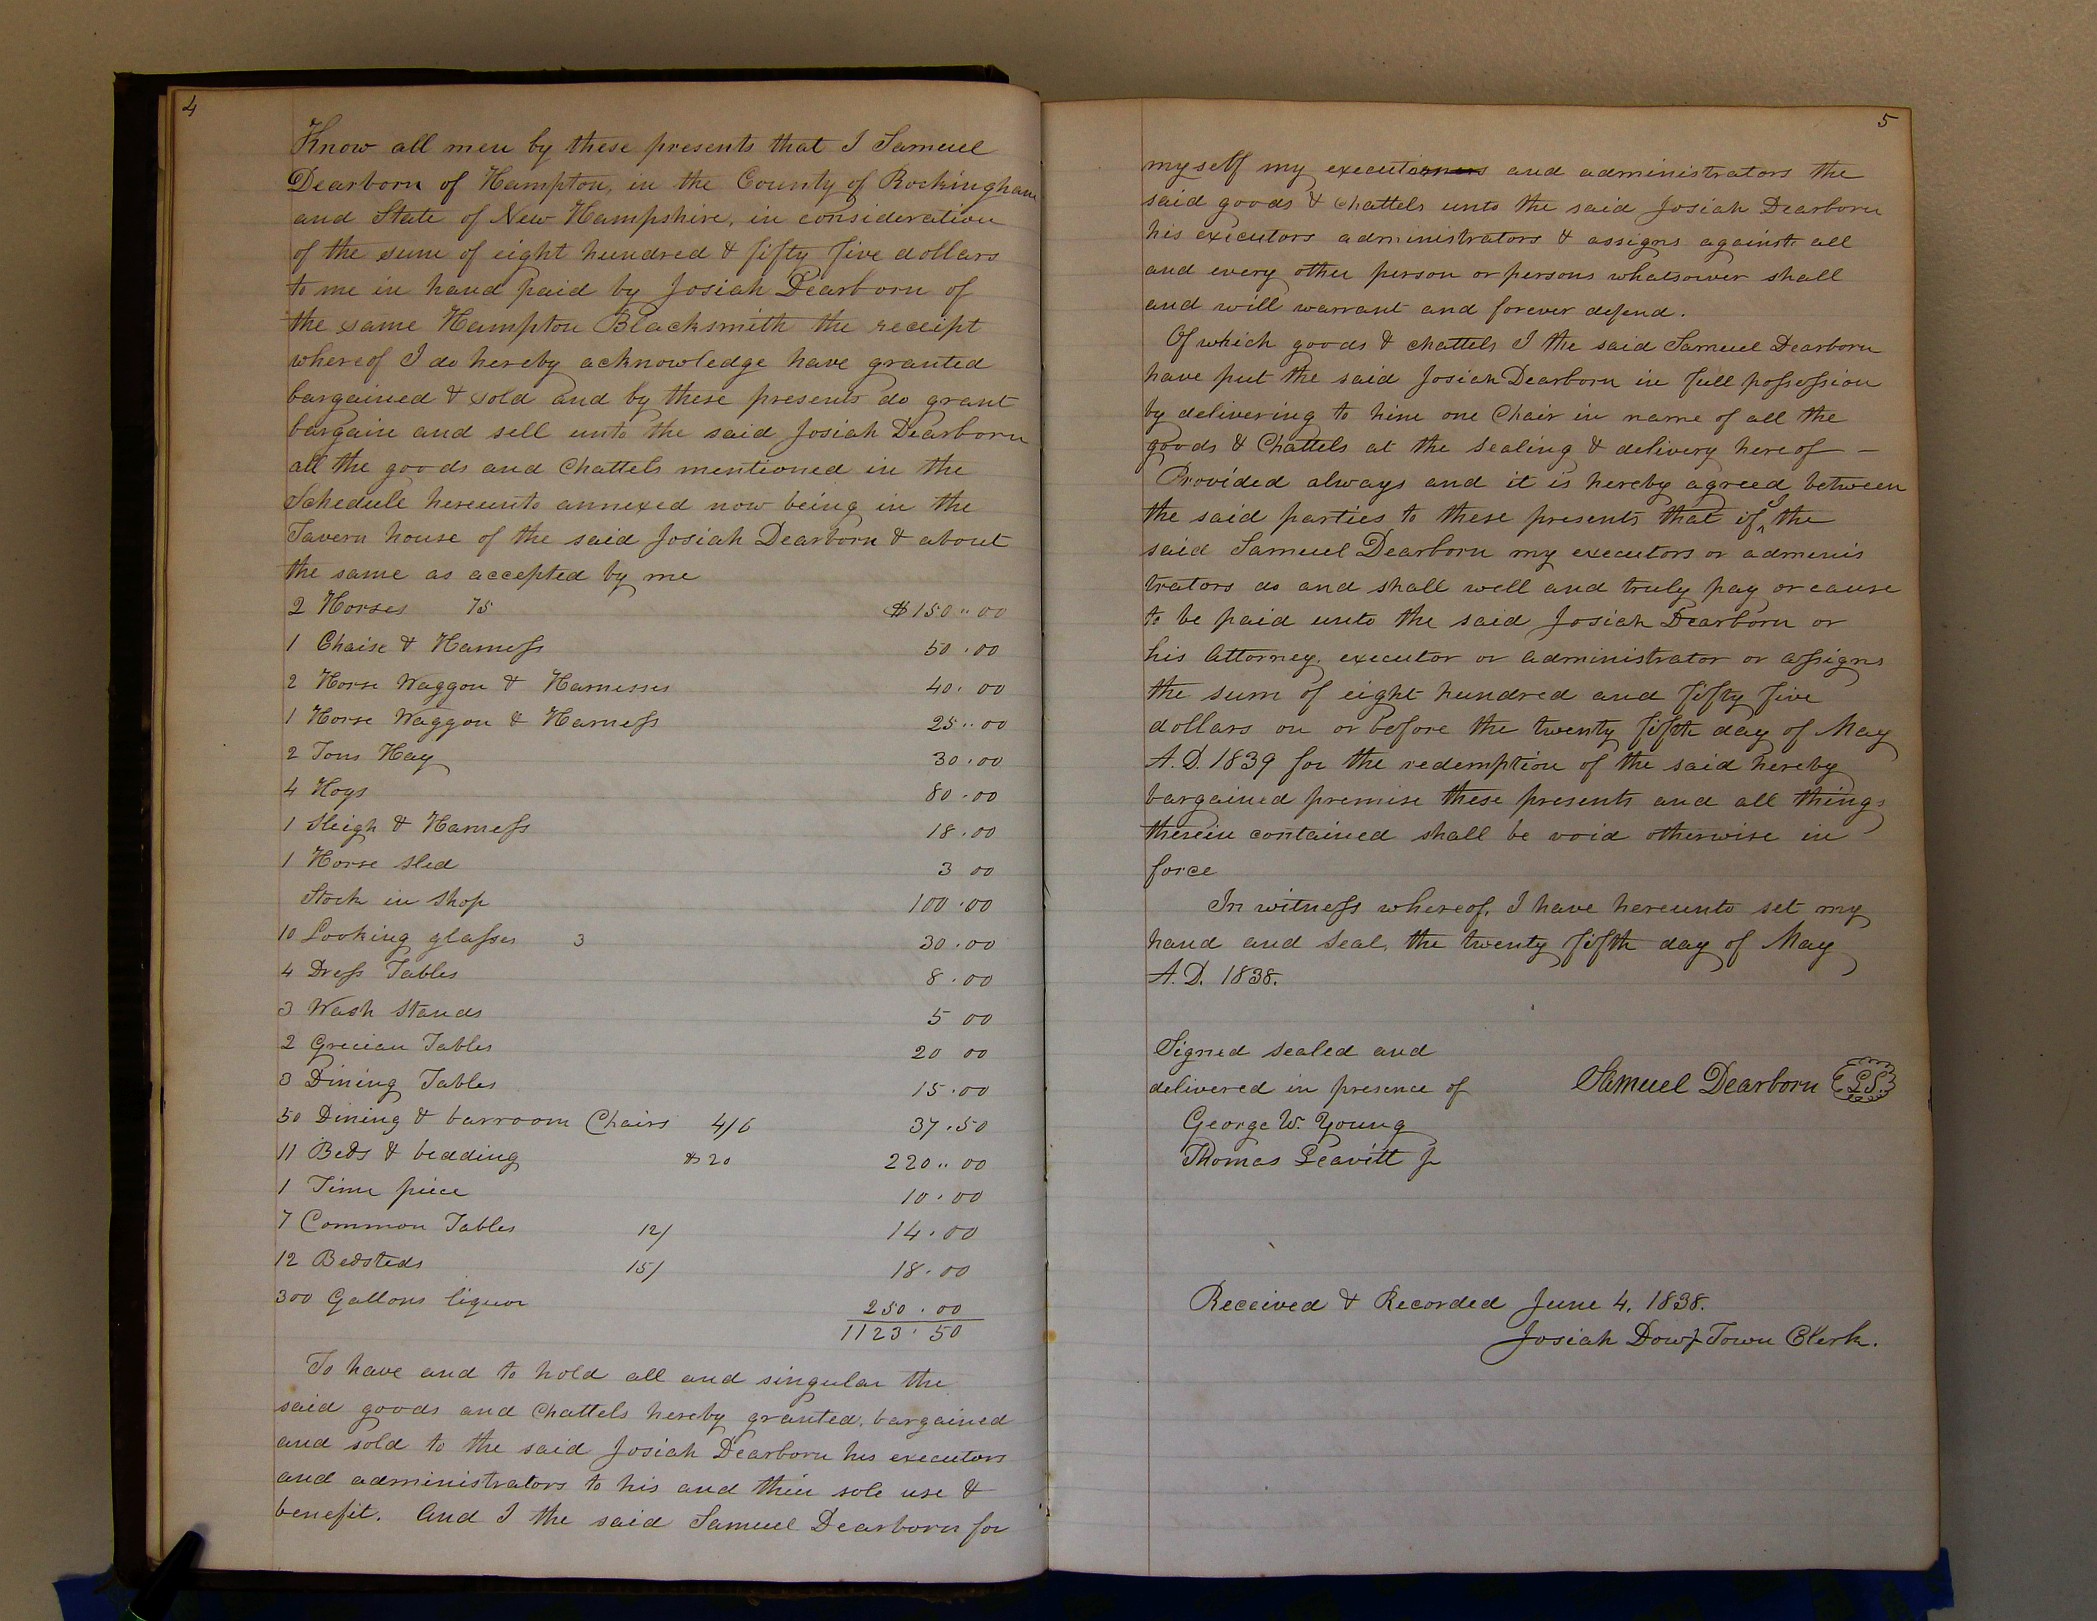 4
Know all men by these presents that I Samuel
Dearborn of Hampton, in the County of Rockingham
and State of New Hampshire, in consideration
of the sum of eight hundred & fifty five dollars
to me in hand paid by Josiah Dearborn of
the same Hampton Blacksmith the receipt
whereof I do hereby acknowledge have granted
bargained & sold and by these presents do grant
bargain and sell unto the said Josiah Dearborn
all the goods and Chattels mentioned in the
Schedule hereunto annexed now being in the
Tavern house of the said Josiah Dearborn & about
the same as accepted by me
2 Horses 75 $150.00
1 Chaise & Harness 50.00
2 Horse Waggon & Harnesses 40.00
1 Horse Waggon & Harness 25.00
2 Tons Hay 30.00
4 Hogs 80.00
1 Sleigh & Harness 18.00
1 Horse Sled 3 00
Stock in Shop 100.00
10 Looking glasses 3 30.00
4 Dress Tables 8.00
3 Wash Stands 5 00
2 Grecian Tables 20 00
3 Dining Tables 15.00
50 Dining & barroom Chairs 4/6 37.50
11 Beds & bedding $20 220.00
1 Time piece 10.00
7 Common Tables 12/ 14.00
12 Bedsteds 15/ 18.00
300 Gallons liquor 250.00
1123.50
To have and to hold all and singular the
said goods and Chattels hereby granted, bargained
and sold to the said Josiah Dearborn his executors
and administrators to his and their sole use &
benefit. And I the said Samuel Dearborn for
5
myself my executioners and administrators the
said goods & Chattels unto the said Josiah Dearborn
his executors administrators & assigns against all
and every other person or persons whatsoever shall
and will warrant and forever defend.
Of which goods & chattels I the said Samuel Dearborn
have put the said Josiah Dearborn in full possession
by delivering to him one Chair in name of all the
goods & Chattels at the Sealing & delivery hereof —
Provided always and it is hereby agreed between
the said parties to these presents that if I the
said Samuel Dearborn my executors or adminis
trators do and shall well and truly pay or cause
to be paid unto the said Josiah Dearborn or
his Attorney, executor or administrator or assigns
the sum of eight hundred and fifty five
dollars on or before the twenty fifth day of May
A.D. 1839 for the redemption of the said hereby
bargained premise these presents and all things
therein contained shall be void otherwise in
force
In witness whereof, I have hereunto set my
hand and Seal, the twenty fifth day of May
A.D. 1838.
Signed Sealed and
delivered in presence of Samuel Dearborn L.S.
George W. Young
Thomas Leavitt Jr
Received & Recorded June 4. 1838.
Josiah Dow Jr Town Clerk.